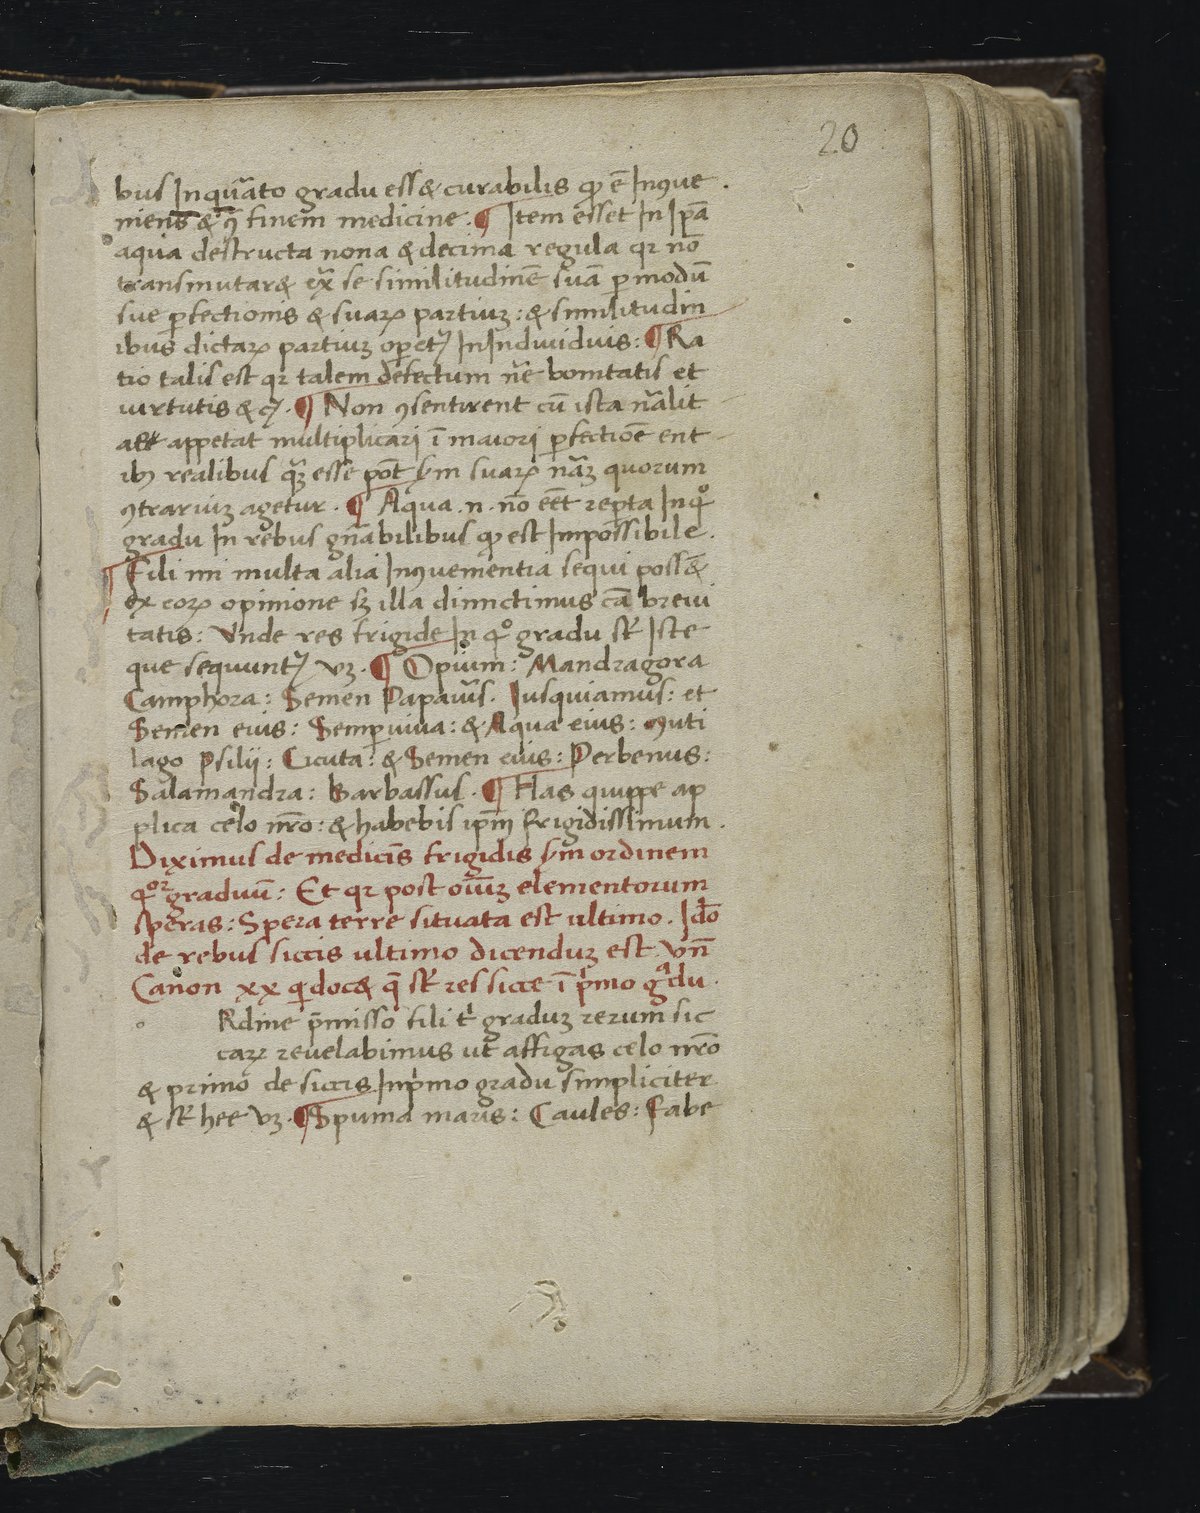 20
bus Inquãto gradu ess& curabilis qꝫ ẽ Inꝯue
niens & ꝯ finem medicine. ¶ Item esset In Ipã
aqua destructa nona & decima regula qr nõ
transmutar& ex̃ se similitudinẽ suã p modũ
sue pfectionis & suarꝝ partiuꝫ: & similitudin
ibus dictarꝝ partiuꝫ opetꝰ InIndiuiduis: ¶ Ra
tio talis est qr talem defectum nr̃e bonitatis et
uirtutis & cꝰ. ¶ Non ꝯsentirent cũ ista nãlit
appetat multiplicari ĩ maiori pfectiõe ent
ibꝫ realibus qꝫ esse põt s̃m suarꝝ nãꝫ quorum
ꝯtrariuꝫ agetur. ¶ Aqua .n. nõ eẽt repta Inqº
gradu In rebus gñabilibus qꝫ est Impossibile.
¶ Fili mi multa alia Inꝯuenientia sequi poss&
ex eorꝝ opinione sꝫ illa dimictimus cã breui
tatis: Vnde res frigide In qº gradu st̃ Iste
que sequuntꝰ vꝫ. ¶ Opium: Mandragora
Camphora: Semen Papaũis. Iusquiamus: et
Semen eius: Semperuiua: & Aqua eius: Muti
lago Psilij: Cicuta: & Semen eius: Perbenus:
Salamandra: Barbassus. ¶ Has quippe ap
plica celo nr̃o: & habebis ipm̃ frigidissimum.
Diximus de medicis̃ frigidis s̃m ordinem
qºr graduũ: Et qr post oiũꝫ elementorum
speras: Spera terre situata est ultimo. Idõ
de rebus siccis ultimo dicenduꝫ est. Vñ
Canon xx qi doc& q̃ st̃ res sicce ĩ pimo gadu.
o Rdine p̃misso fili ti graduꝫ rerum sic
carꝝ reuelabimus ut affigas celo nr̃o
& primo de siccis Inpimo gradu simpliciter
& st̃ hee vꝫ. ¶ Spuma maris: Caules: Fabe